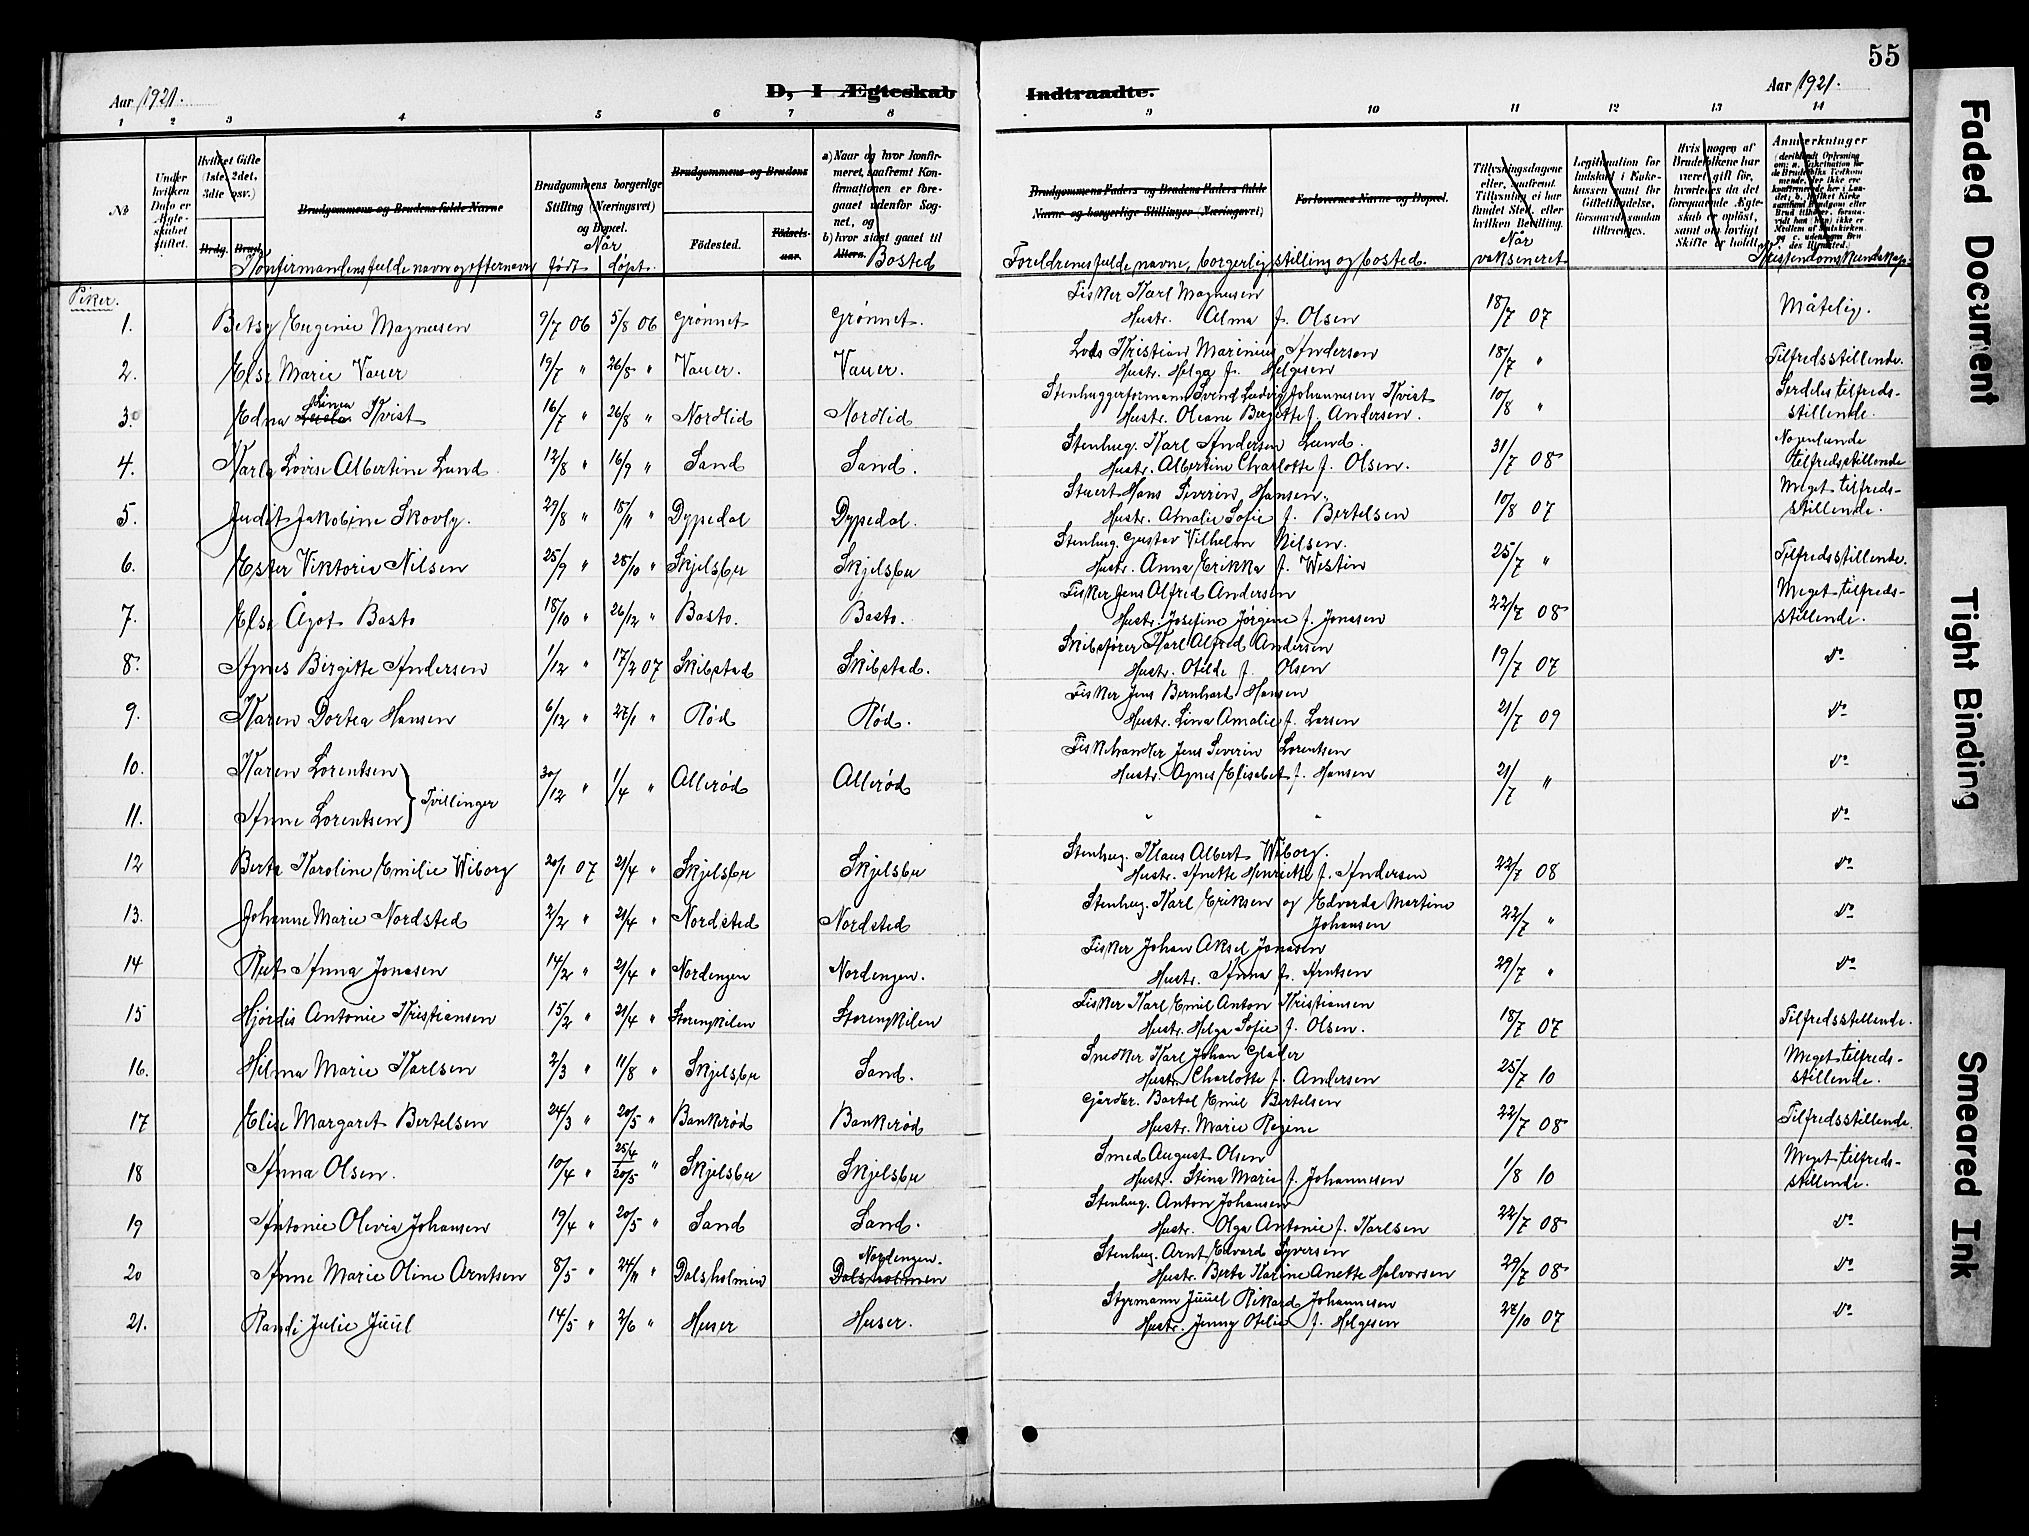 55
Aar 1921.
D, I Ægteskab
Indtraadte.
Aar 1921.
1 2 3 4 5 6 7 8 9 10 11 12 13 14
No
Under hvilken Dato er Ægteskabet stiftet.
Hvilket Gifte (1ste, 2det, 3die osv.)
Brdg. Brud
Brudgommens og Brudens fulde Navne
Brudgommens borgerlige Stilling (Næringsvei) og Bopæl.
Brudgommens og Brudens
Födested.
Födselsaar.
a) Naar og hvor konfirmeret, saafremt Konfirmationen er foregaaet udenfor Sognet, og
b) hvor sidst gaaet til Alters.
Brudgommens Faders og Brudens Faders fulde Navne og borgerlige Stillinger (Næringsvei)
Forlovernes Navne og Bopæl.
Tillysningsdagene eller, saafremt Tillysning ei har fundet Sted, efter hvilken Bevilling.
Legitimation for Indskud i Enkekassen samt for Giftetilladelse, forsaavidt saadan tiltrænges.
Hvis nogen af Brudefolkene har været gift för, hvorledes da det foregaaende Ægteskab er oplöst, samt om lovligt Skifte er holdt.
Anmerkninger
Konfirmandens fulde navn og efternavn
Når
født døpt.
Bosted
Foreldrenes fulde navne, borgerlig stilling og bosted.
Når vaksineret
Kristendomskundskap.
Piker.
1. Betsy Eugenie Magnusen 9/7 06 5/8 06 Grønnet Grønnet. Fisker Karl Magnusen
Hustr. Alma f. Olsen 18/7 07 Måtelig.
2. Else Marie Vauer 19/7 " 26/8 " Vauer. Vauer. Lods Kristian Marinius Anderson
Hustr. Helga f. Helgesen 18/7 " Tilfredsstillende.
3. Edna Linea Kvist 16/7 " 26/8 " Nordlid Nordlid Stenhuggerformann Svend Ludvig Johannesen Kvist
Hustr. Oleane Bergitte f. Andersen. 10/8 " Serdeles tilfredsstillende.
4. Karla Lovise Albertine Lund 12/8 " 16/9 " Sand Sand. Stenhug. Karl Andersen Lund.
Hustr. Albertine Charlotte f. Olsen. 31/7 08 Nogenlunde tilfredsstillende
5. Judit Jakobine Skovly. 29/8 " 18/11 " Dypedal Dypedal. Stuert Hans Severin Hansen.
Hustr. Amalie Sofie f. Bertelsen 10/8 07 Meget tilfredsstillende.
6. Ester Viktoria Nilsen 25/9 " 28/10 " Skjelsbu Skjelsbu Stenhug. Gustav Vilhelm Nilsen.
Hustr. Anna Erikka f. Westin 25/7 " Tilfredsstillende.
7. Else Ågot Basto 18/10 " 26/12 " Basto. Basto. Fisker Jens Alfred Andersen
Hustr. Josefine Jørgine f. Jonasen 22/7 08 Meget tilfredsstillende.
8. Agnes Birgitte Andersen 1/12 " 17/2 07 Skibstad Skibstad. Skibsfører Karl Alfred Andersen
Hustr. Otilde f. Olsen 19/7 07 do
9. Karen Dortea Hansen 6/12 " 27/1 " Rød Rød. Fisker Jens Bernhard Hansen
Hustr. Lina Amalie f. Larsen 21/7 09 do
10. Karen Lorentsen } Tvillinger 30/12 " 1/4 " Allerød Allerød Fiskehandler Jens Severin Lorentsen
Hustr. Agnes Elisabet f. Hansen 21/7 " do
11. Anne Lorentsen " " do
12 Berta Karoline Emilie Wiborg 20/1 07 21/4 " Skjelsbu Skjelsbu Stenhug. Klaus Albert Wiborg.
Hustr. Anette Henriette f. Andersen 22/7 08 do
13. Johanne Marie Nordsted 2/2 " 21/4 " Nordsted Nordsted Stenhug. Karl Eriksen og Edvarda Martine
Johansen 22/7 " do
14 Rut Anna Jonasen 14/2 " 21/4 " Nordengen Nordengen. Fisker Johan Aksel Jonasen
Hustr. Anna f. Arntsen 29/7 " do
15 Hjørdis Antonie Kristiansen 15/2 " 21/4 " Storengkilen Storengkilen Fisker Karl Emil Anton Kristiansen
Hustr. Helga Sofie f. Olsen. 18/7 07 Tilfredsstillende.
16. Hilma Marie Karlsen 2/3 " 11/8 " Skjelsbu Sand. Snedker Karl Johan Glader
Hustr. Charlotte f. Andersen 25/7 10 Meget tilfredsstillende.
17 Elise Margaret Bertelsen 24/3 " 20/5 " Bankerød Bankerød Gårdbr. Bartol Emil Bertelsen
Hustr. Marie Regine 22/7 08 Tilfredsstillende.
18 Anna Olsen. 10/4 " 25/4 20/5 " Skjelsbu Skjelsbu Smed August Olsen
Hustr. Stina Marie f. Johannesen 1/8 10 Meget tilfredsstillende.
19 Antonie Olivia Johansen 19/4 " 20/5 " Sand Sand. Stenhug. Anton Johansen
Hustr. Olga Antonie f. Karlsen 22/7 08 do
20 Anne Marie Oline Arntsen 8/5 " 24/11 " Dalsholmen Nordengen. Dalsholmen Stenhug. Arnt Edvard Syversen
Hustr. Berta Karine Anette Halvorsen 29/7 08 do
21. Randi Julie Juul 14/5 " 2/6 " Huser Huser. Styrmann Juul Rikard Johannesen
Hustr. Jenny Otelie f. Helgesen 27/10 07 do
Faded Document
Tight Binding
Smeared Ink